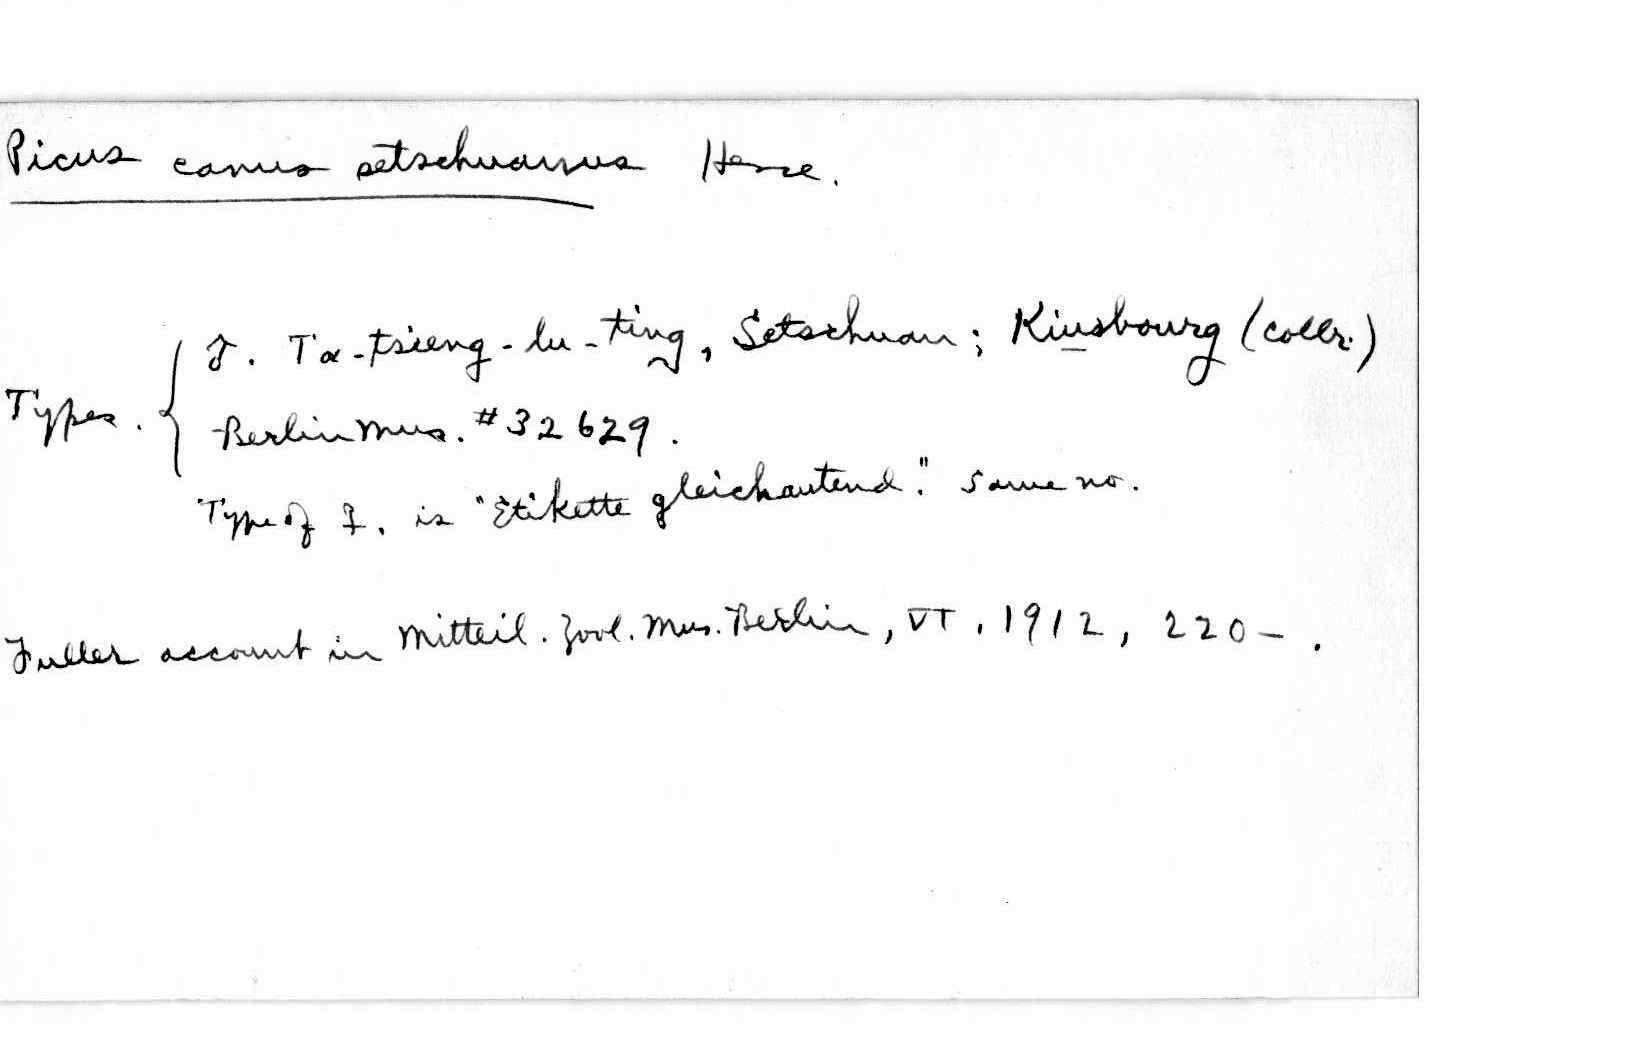 Picus canus setschuanus Hesse.
♂. Ta-tsieng-lu-ting, Setschuan; Kiusbourg (collr.)
Types. { Berlin Mus. #32629.
Type of ♀. is "Etikette gleichautend." Same no.
Fuller account in Mitteil. Zool. Mus. Berlin, VI, 1912, 220– .